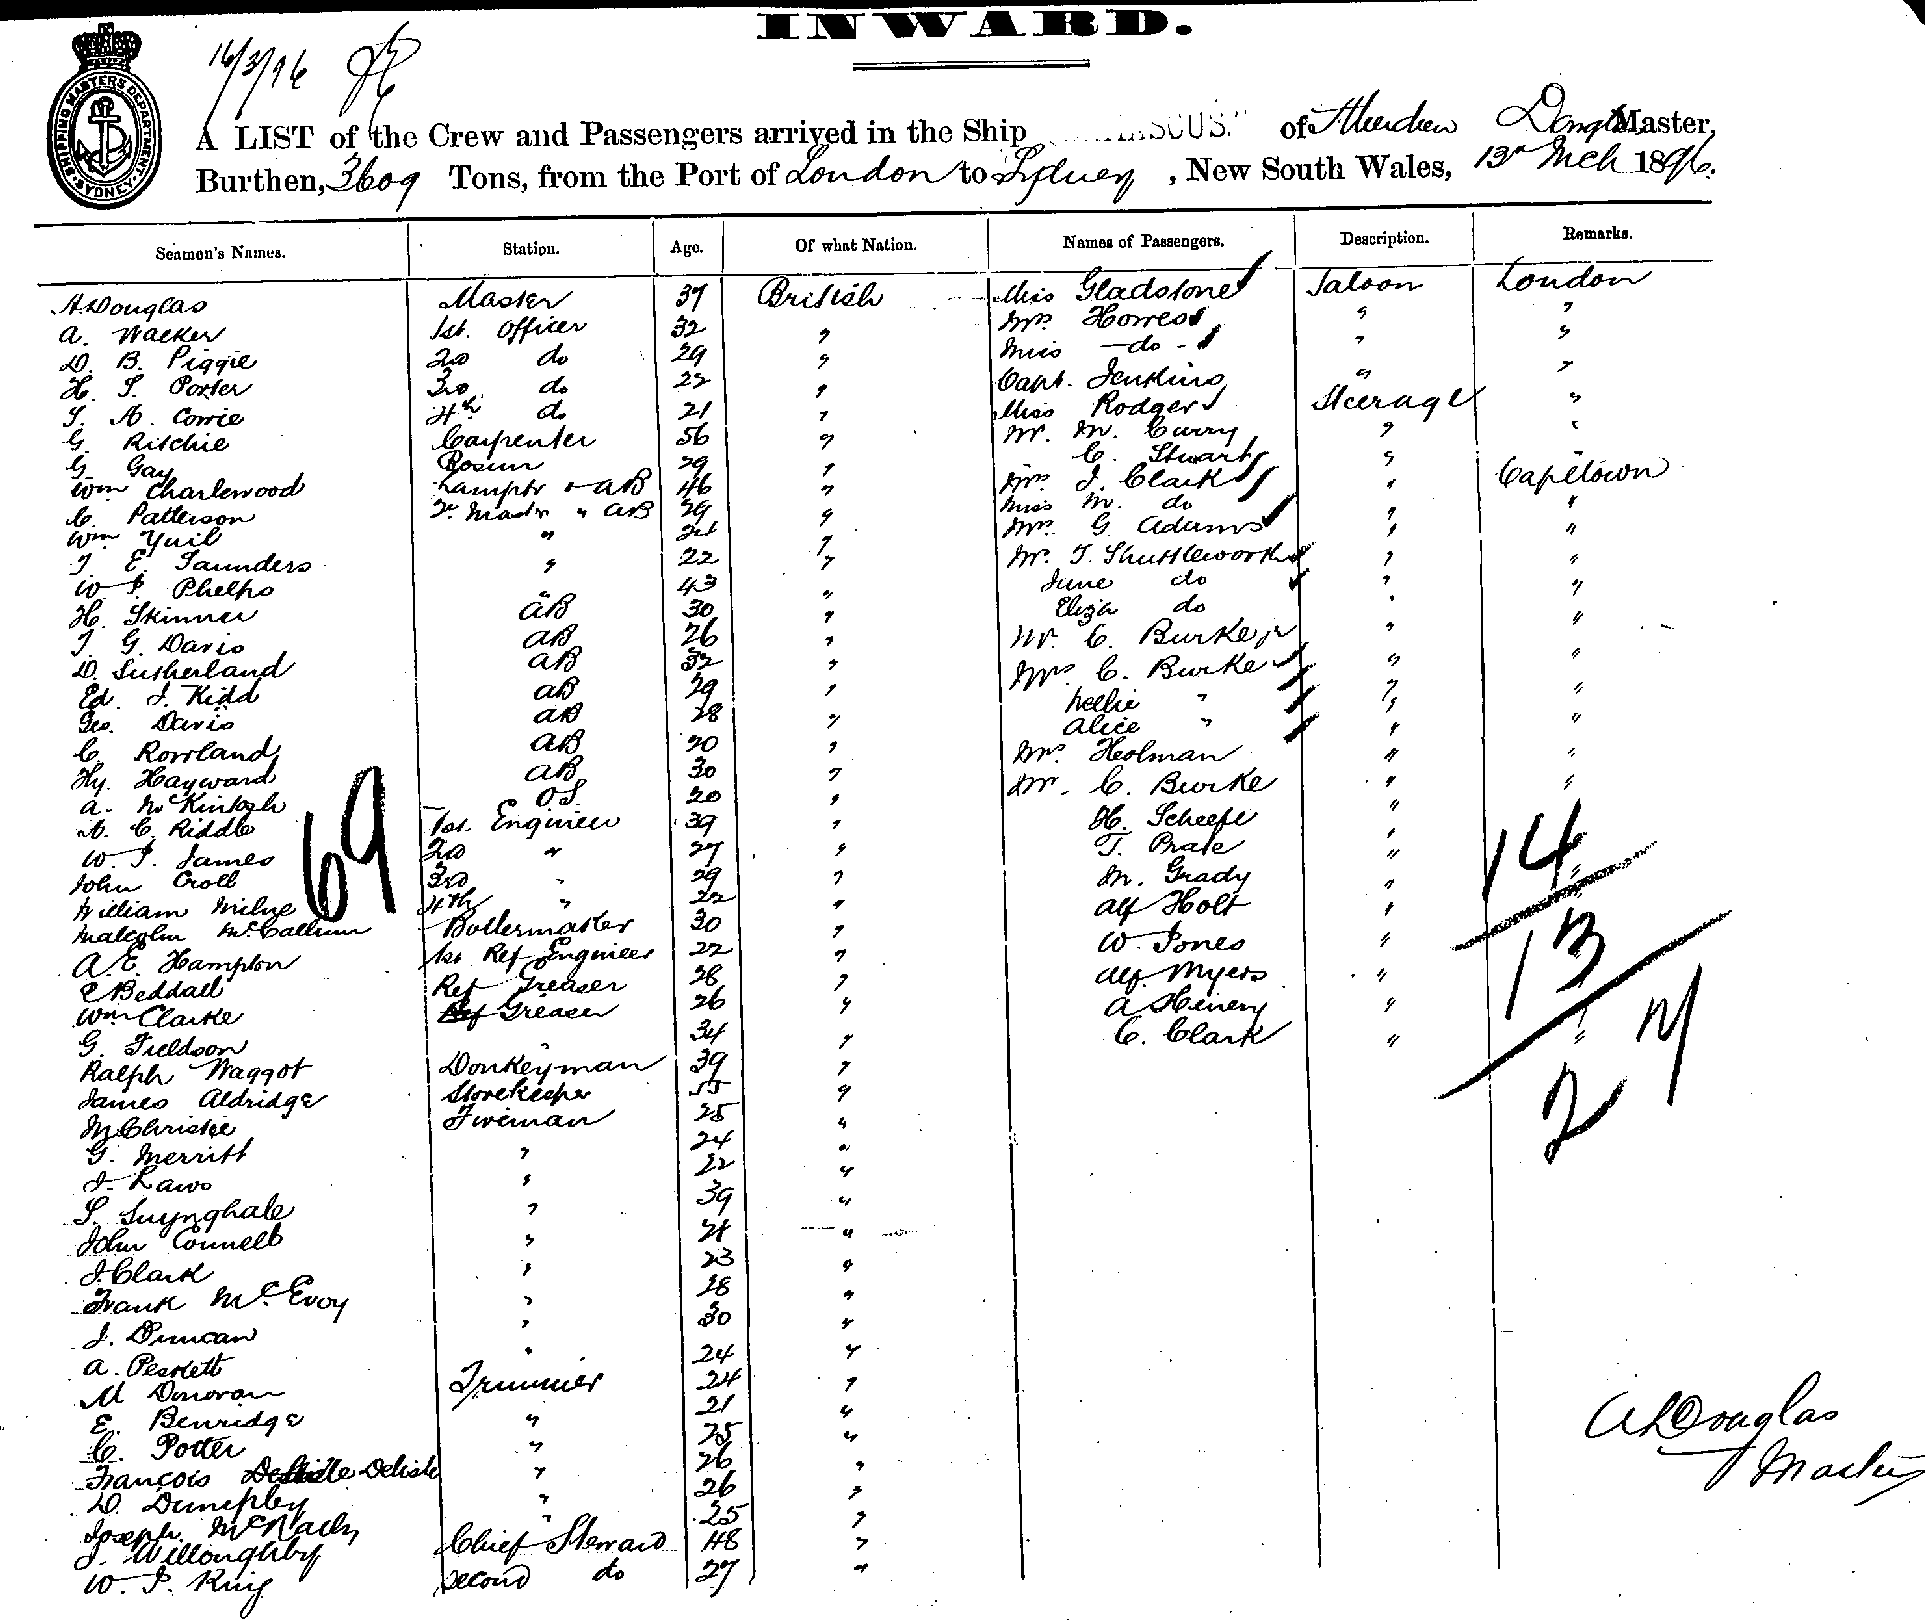 INWARD.
SHIPPING MASTERS DEPARTMENT SYDNEY
16/3/96
A LIST of the Crew and Passengers arrived in the Ship ASCUS." of Aberdeen Douglas Master,
Burthen, 3609 Tons, from the Port of London to Sydney, New South Wales, 13 Mch 1896.
Seamen's Names. Station. Age. Of what Nation. Names of Passengers. Description. Remarks.
A Douglas Master 37 British Miss Gladstone Saloon London
A. Walker 1st. Officer 32 " Mrs Horres " "
D. B. Piggie 2nd do 29 " Miss - do - " "
H. S. Porter 3rd do 22 " Capt. Jenkins " "
A. Corrie 4th do 21 " Miss Rodger Steerage "
G. Ritchie Carpenter 56 " Mr. M. Curry " "
G. Gay Bosun 29 " C. Stuart " "
Wm Charlewood Lamptr & AB 46 " Mrs J. Clark " Capetown
C. Patterson " AB 29 " Miss M. do " "
Wm Yuil " " Mrs G Adams " "
T. E. Saunders " 22 " Mr. T. Shuttleworth " "
W Phelps " 43 " June do " "
H. Skinner AB 30 " Eliza do " "
T. G. Davis AB 26 " Mr. C. Burke jr " "
D. Sutherland AB 32 " Mrs C. Burke " "
Ed. J. Kidd AB 29 " Nellie " " "
Geo. Davis AB 28 " Alice " " "
C. Rowland AB 20 " Mrs Holman " "
Hy. Hayward AB 30 " Mr. C. Burke " "
A. McKintosh O.S. 20 " H. Scheefe "
A. C. Riddle 1st. Engineer 39 " T. Prate "
W. James 2nd " 27 " M. Grady "
John Croll 3rd " 29 " Alf Holt "
William Milne 4th " 22 " W. Jones "
Malcolm McCallum Boilermaker 30 " Alf. Myers "
A. E. Hampton 1st Ref Engineer 22 " A Hinery "
E Beddall Ref Greaser 28 " C. Clark "
Wm Clarke Ref Greaser 26 "
G. Fieldson " 34 "
Ralph Waggot Donkeyman 39 "
James Aldridge Storekeeper 55 "
M Christie Fireman 25 "
G. Merritt " 24 "
J. Laws " 22 "
S. " 39 "
John Connell " "
J. Clark " 23 "
Frank McEvoy " 28 "
J. Duncan " 30 "
A. Peskett " 24 "
M Donovan Trimmer 24 "
E. Benridge " 21 "
C. Potter " 25 "
Francois Delisle " 26 "
D. Dumphey " 26 "
Joseph McNally " 25 "
J. Willoughby Chief Steward 48 "
W. King Second do 27 "
69
14
13
27
A Douglas
Master